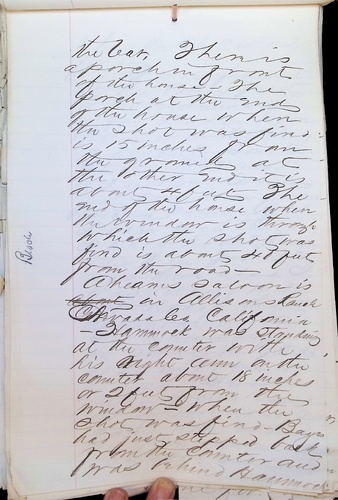 the bar, There is
a porch in front
of the house - The
porch at the end
of the house where
the shot was fired
is 15 inches from
the ground at
the other end it is
about 4 feet The
end of the house where
the window is through
which the shot was
fired is about 40 feet
from the road -
Adams saloon is
on Allisons Ranch
Nevada Co California
- Hammock was standing
at the counter with
his right arm on the
counter about 18 inches
or 2 feet from the
window - when the
shot was fired -
had just stepped back
from the counter and
was behind Hammock